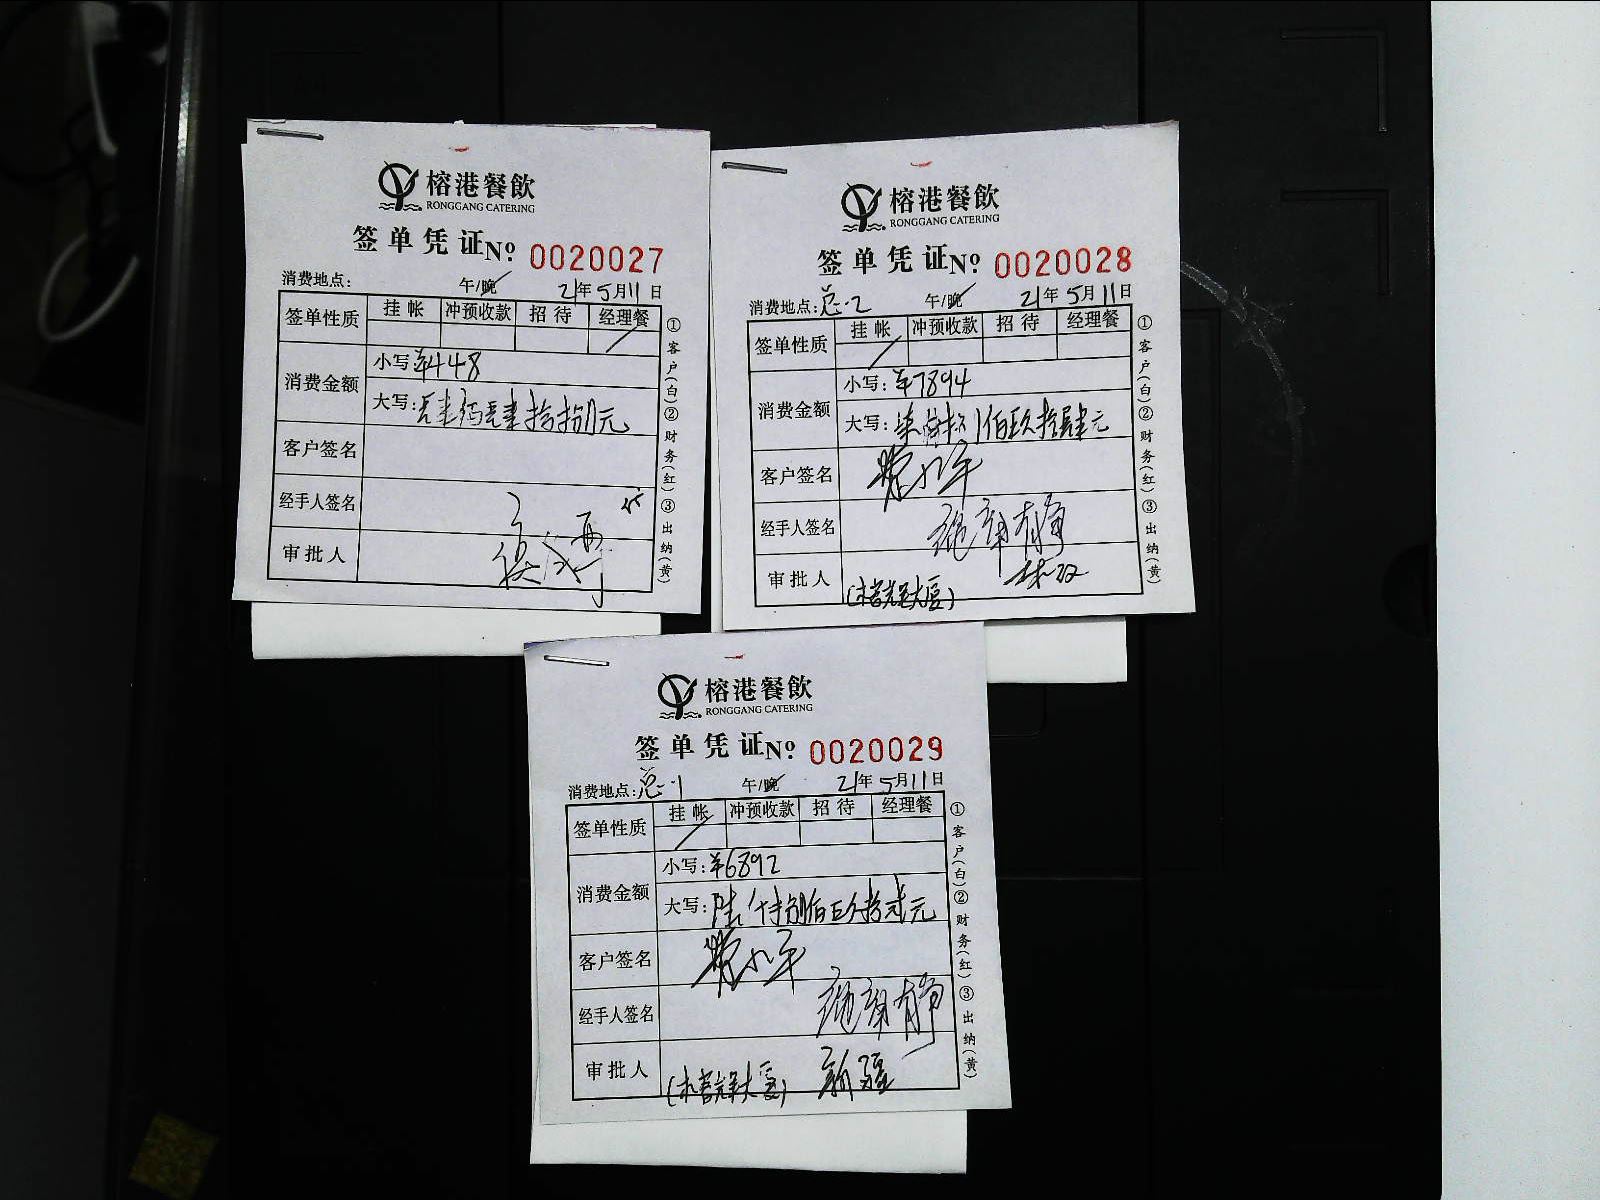 榕港餐飲
RONGGANG CATERING
签单凭证No 0020027
消费地点: 午/晚 21年5月11日
签单性质 挂帐 冲预收款 招待 经理餐
消费金额 小写¥448
大写:肆佰肆拾捌元
客户签名
经手人签名
审批人
①客户(白)②财务(红)③出纳(黄)
榕港餐飲
RONGGANG CATERING
签单凭证No 0020028
消费地点:总-2 午/晚 21年5月11日
签单性质 挂帐 冲预收款 招待 经理餐
消费金额 小写:¥7894
大写:柒仟捌佰玖拾肆元
客户签名
经手人签名
审批人
①客户(白)②财务(红)③出纳(黄)
榕港餐飲
RONGGANG CATERING
签单凭证No 0020029
消费地点:总-1 午/晚 21年5月11日
签单性质 挂帐 冲预收款 招待 经理餐
消费金额 小写:¥6892
大写:陆仟捌佰玖拾贰元
客户签名
经手人签名
审批人 新疆
①客户(白)②财务(红)③出纳(黄)